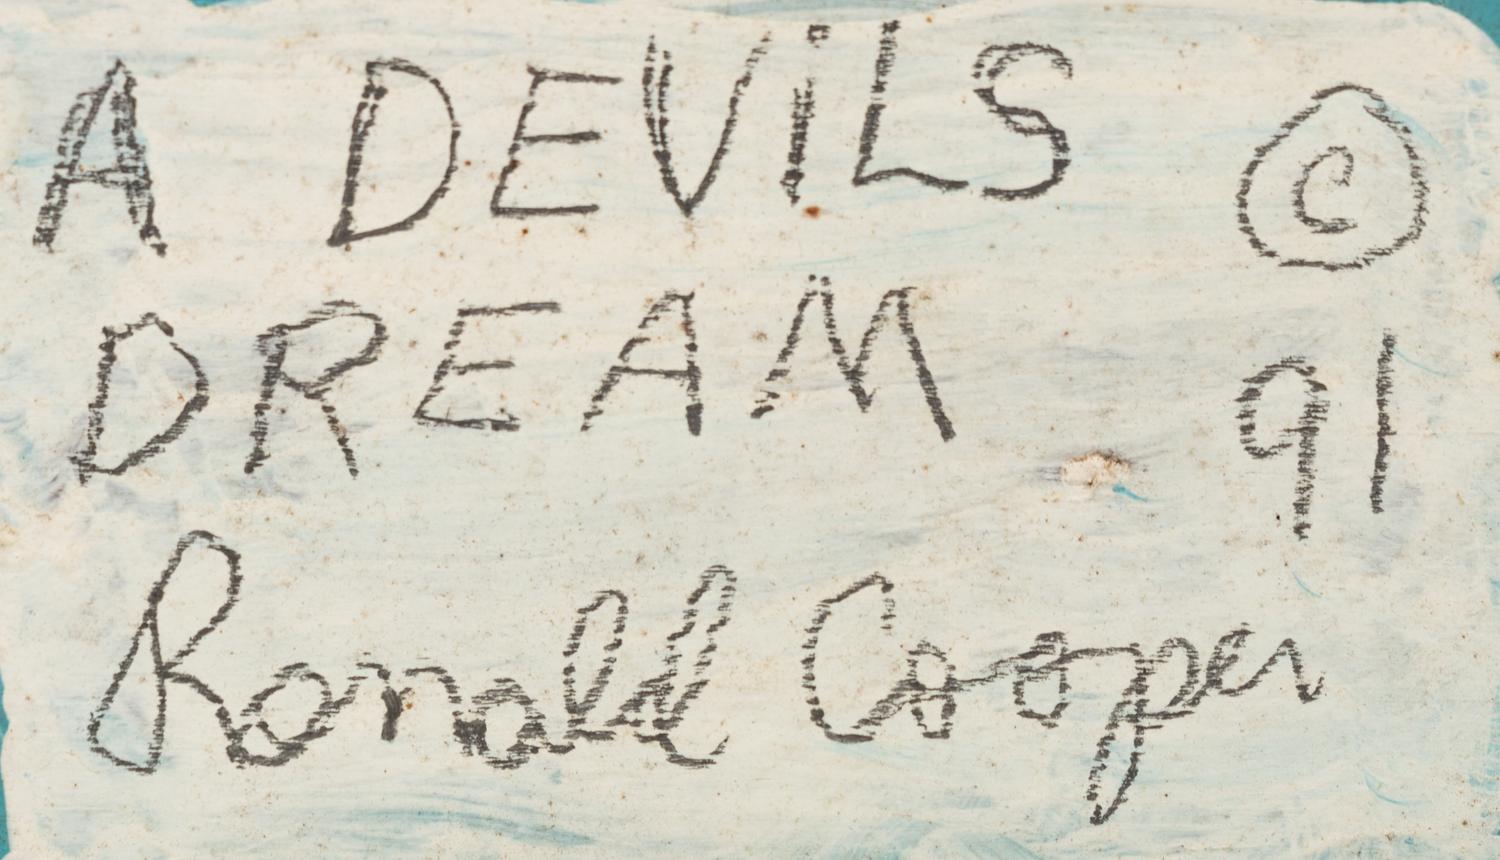 A DEViLS ©
DREAM 91
Ronald Cooper